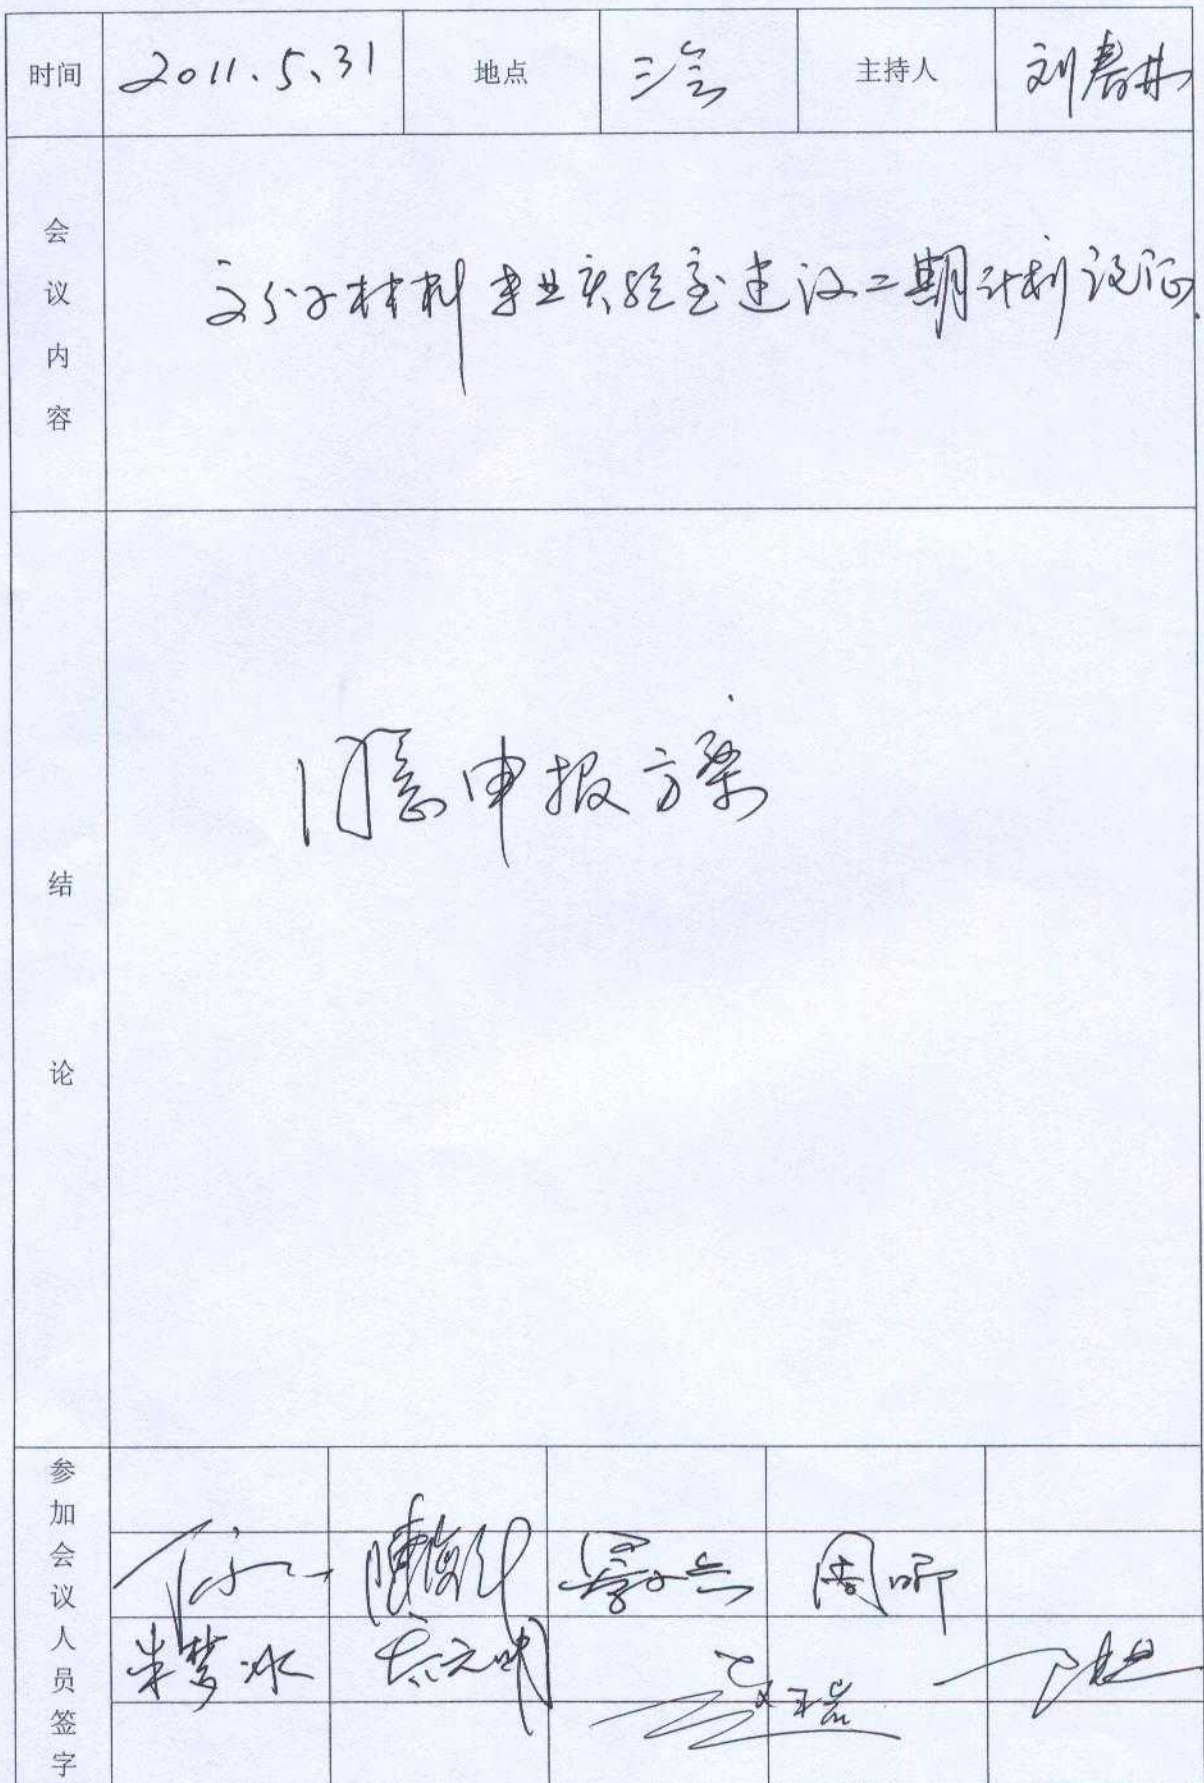 时间 2011.5.31 地点 三会 主持人 刘春林
会议内容
高分子材料专业实验室建设二期计划论证.
同意申报方案
结论
参加会议人员签字
周昕
朱梦冰